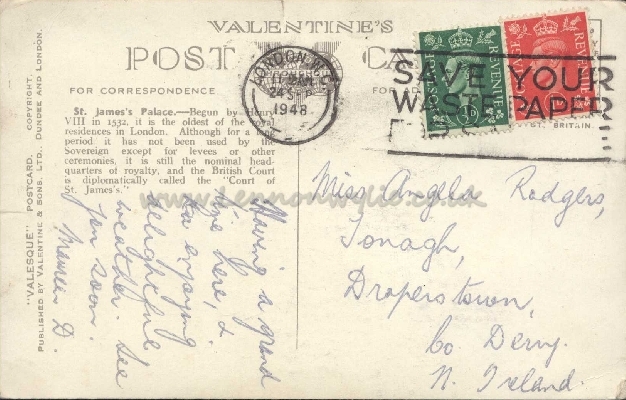 VALENTINE'S
POST CA
FOR CORRESPONDENCE
FOR AD
St. James's Palace.—Begun by Henry
VIII in 1532, it is the oldest of the royal
residences in London. Although for a long
period it has not been used by the
Sovereign except for levees or other
ceremonies, it is still the nominal head-
quarters of royalty, and the British Court
is diplomatically called the "Court of
St. James's."
"VALESQUE" POSTCARD. COPYRIGHT.
PUBLISHED BY VALENTINE & SONS, LTD., DUNDEE AND LONDON.
LONDON
24 SEP
1948
SAVE YOUR
WASTE PAPER
FOR
POSTAGE REVENUE
POSTAGE REVENUE
BRITAIN
Having a grand
time here, &
enjoying
delightful
weather. See
you soon.
Maureen D.
Miss Angela Rodgers,
Tonagh,
Draperstown,
Co Derry.
N. Ireland.
www.lennonwylie.co.uk